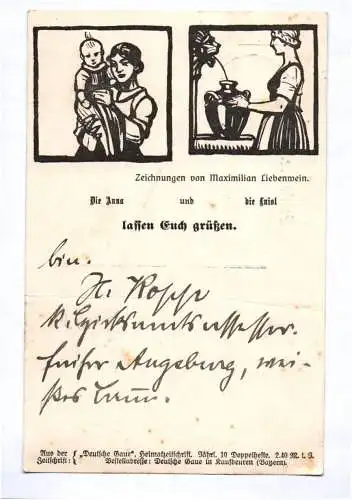 Zeichnungen von Maximilian Liebenwein.
Die Anna und die Luisl
lassen Euch grüßen.
bin.
früher Augsburg, wei-
ßes Lamm.
Aus der Zeitschrift: "Deutsche Gaue", Heimatzeitschrift. Jährl. 10 Doppelhefte. 2.40 M. i. J.
Bestelladresse: Deutsche Gaue in Kaufbeuren (Bayern).